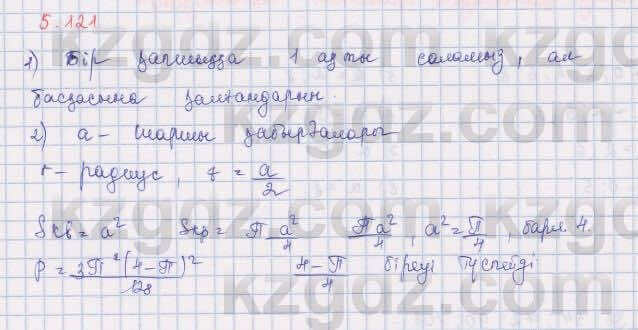 5.121
1) Бір қапшыққа 1 алтын саламыз, ал
басқасына қалғандарын.
2) a - шаршы қабырғалары
r - радиус, r = a/2
Sкв = a² Sкр = π a²/4 πa²/4 , a² = π/4, барл. 4.
P = 3π²(4-π)²/128 4-π/4 біреуі түспейді
kzgdz.com